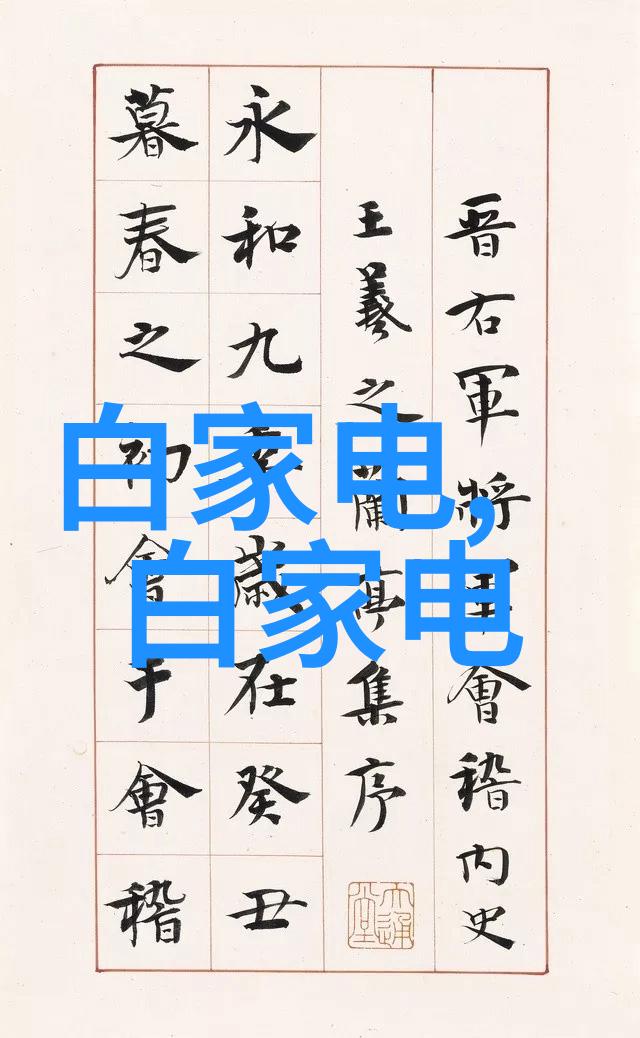 晋右軍將軍會稽内史
王羲之蘭亭集序
永和九年歲在癸丑
暮春之初會于會稽
白家电,
白家电